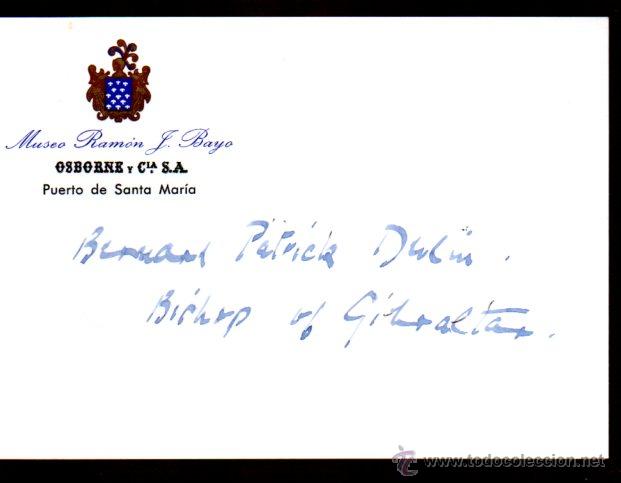 Museo Ramón J. Bayo
OSBORNE Y CLA. S.A.
Puerto de Santa María
Bernard Patrick Devlin.
Bishop of Gibraltar.
todocoleccion
www.todocoleccion.net